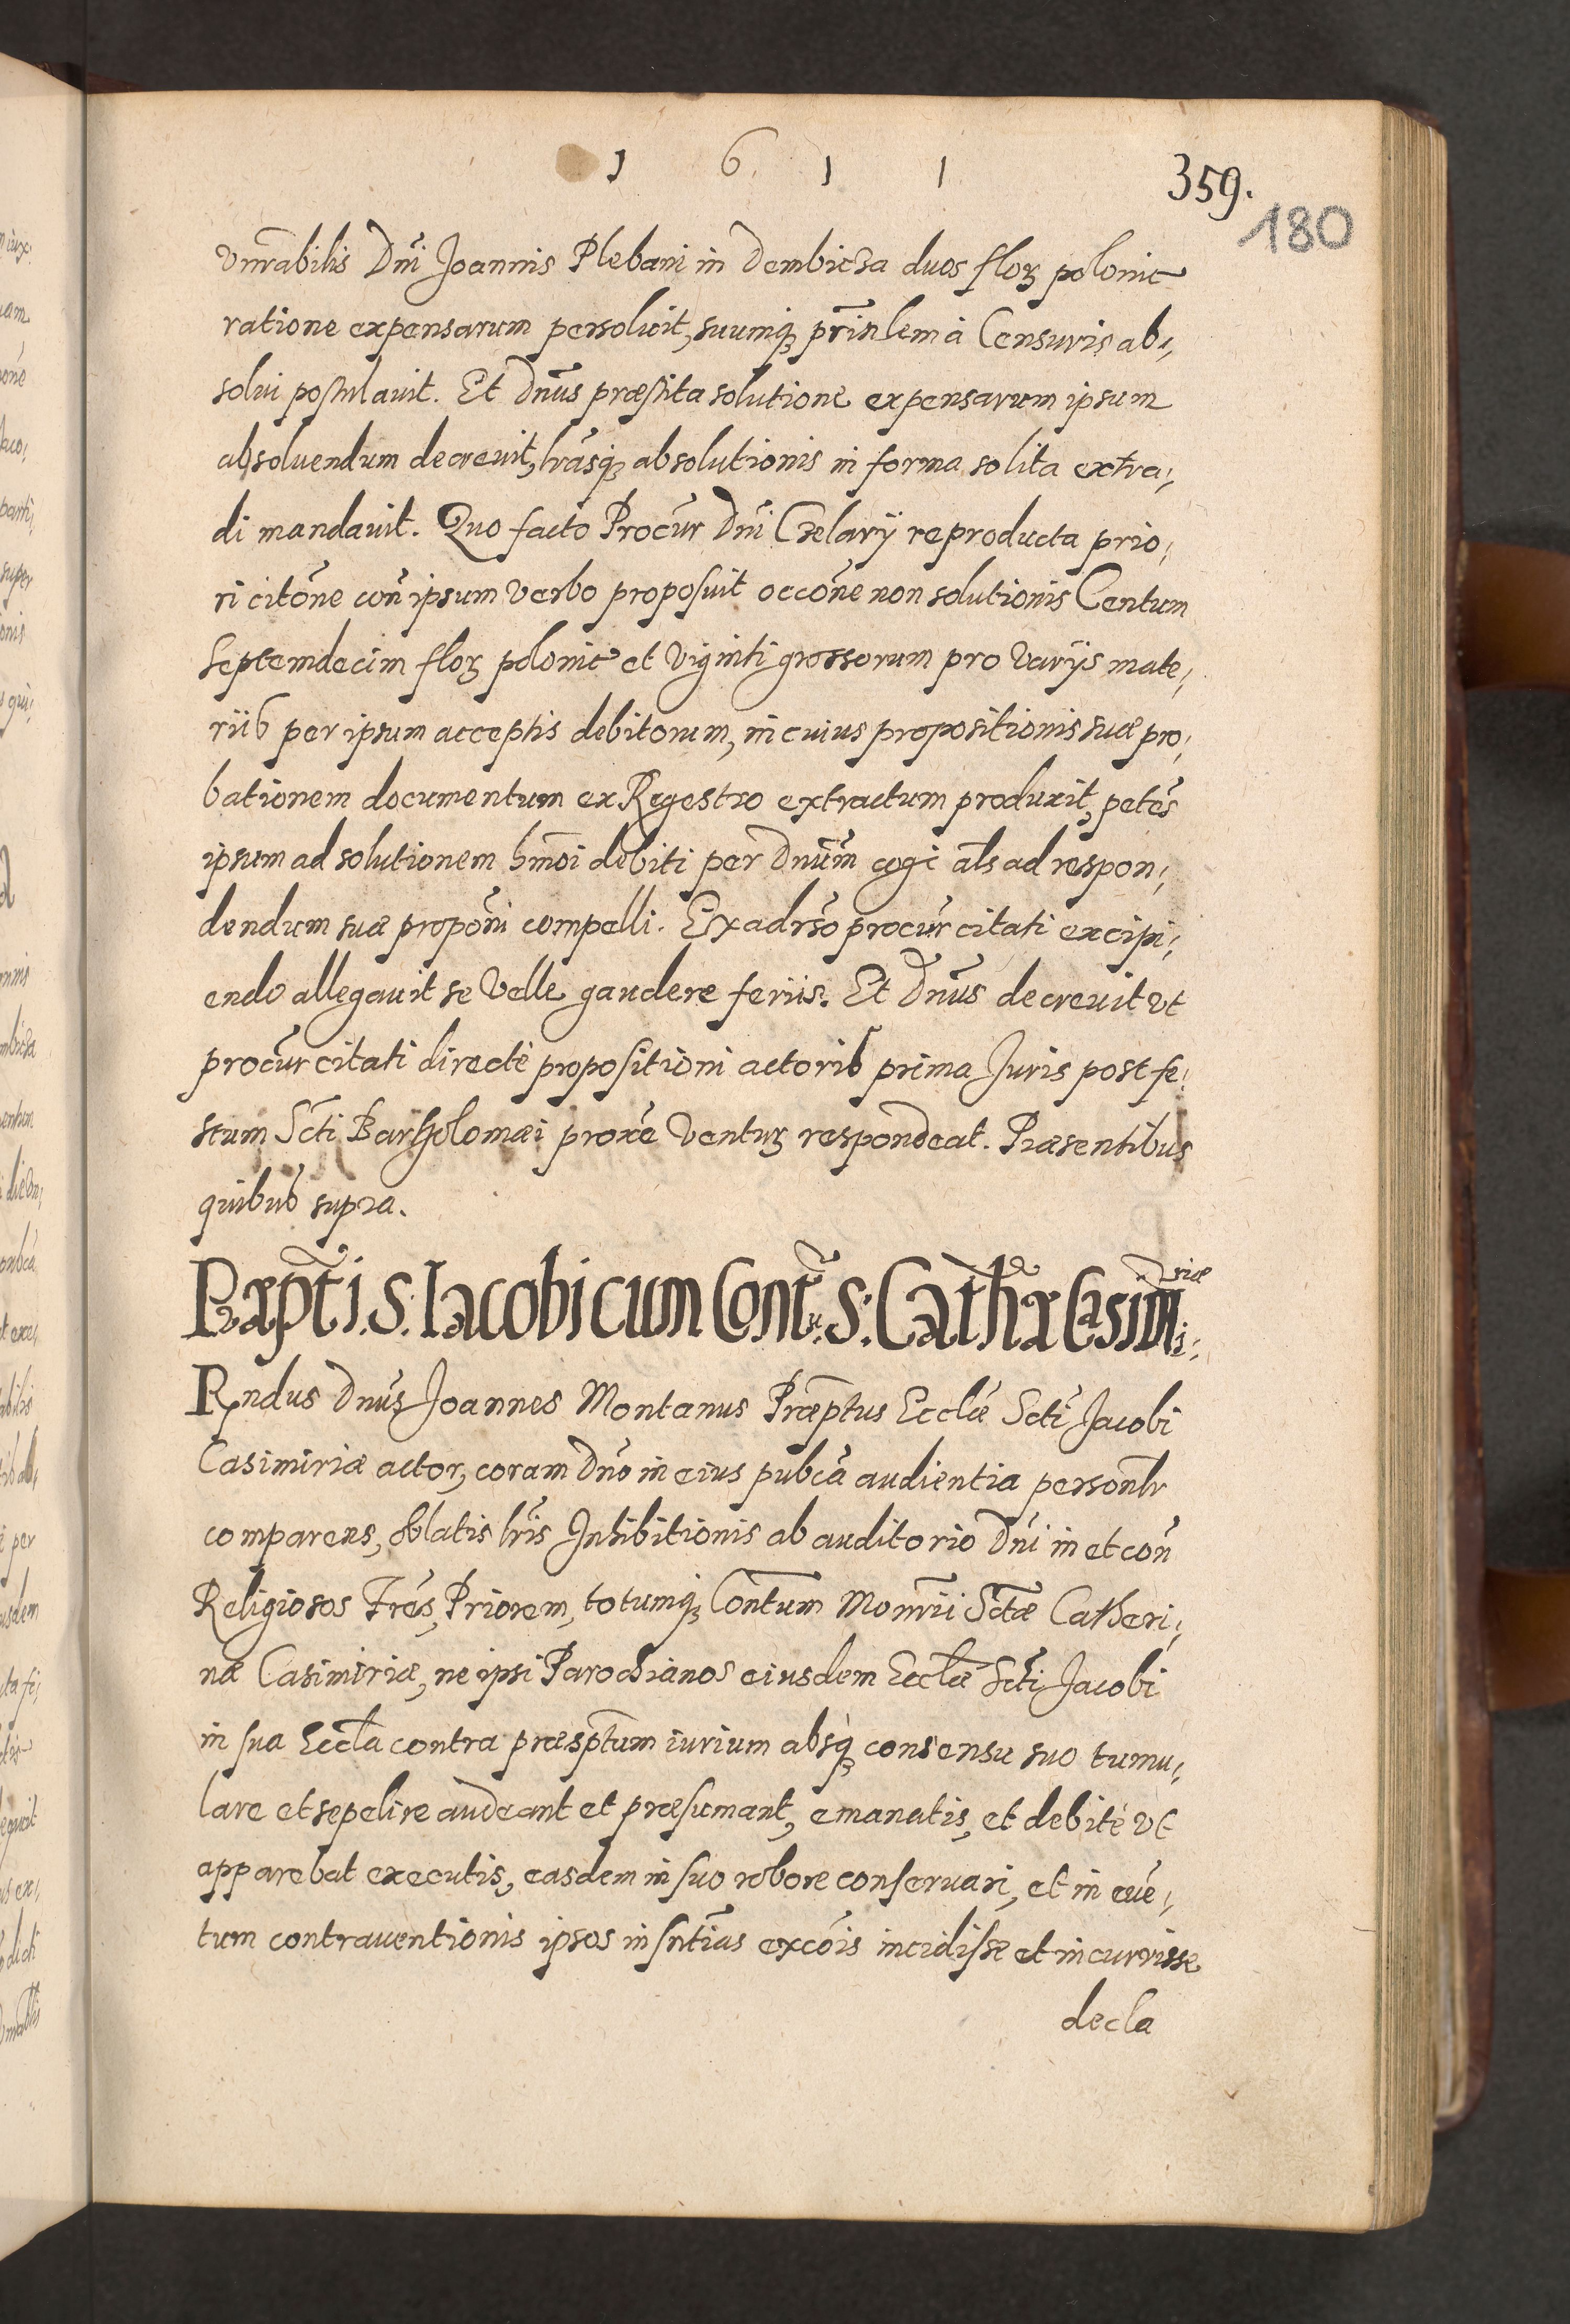 1 6 1 1
359.
180
Vnrabilis Dni Joannis Plebani in Dembicza duos florz polonic
ratione expensarum persoluit, suumqz prinlem à Censuris ab¬
solui postulauit. Et Dnus præstita solutione expensarum ipsum
absoluendum decreuit, lrasqz absolutionis in forma solita extra¬
di mandauit. Quo facto Procur Dni Czelarÿ reproducta prio¬
ri citõne coñ ipsum verbo proposuit occõne non solutionis Centum
septemdecim florz polonic et viginti grossorum pro varÿs mate¬
riib per ipsum acceptis debitorum, in cuius propositionis suæ pro¬
bationem documentum ex Regestro extractum produxit, petẽs
ipsum ad solutionem hmõi debiti per Dnum cogi als ad respon¬
dendum suæ propõni compelli. Ex adrso procur citati excipi¬
endo allegauit se velle gaudere feriis. Et Dnus decreuit vt
procur citati directè propositioni actorib prima Juris post fe¬
stum Scti Bartholomæi proxẽ venturz respondeat. Præsentibus
quibus supra.
Præpti. S. Iacobi cum Contu. S: Cathæ Casimi¬
riæ
Rndus Dnus Joannes Montanus Præptus Ecclæ Scti Jacobi
Casimiriæ actor, coram Dno in eius pubca audientia personlr
comparens, oblatis lris Inhibitionis ab auditorio Dni in et coñ
Religiosos Fres, Priorem, totumqz Contum Monrii Sctæ Catheri¬
næ Casimiriæ, ne ipsi Parochianos eiusdem Ecclæ Scti Jacobi
in sua Eccla contra præsptum iurium absqz consensu suo tumu¬
lare et sepelire audeant et præsumant, emanatis, et debitè vt
apparebat executis, easdem in suo robore conseruari, et in euẽ¬
tum contrauentionis ipsos in sntias excõis incidisse et incurrisse
decla